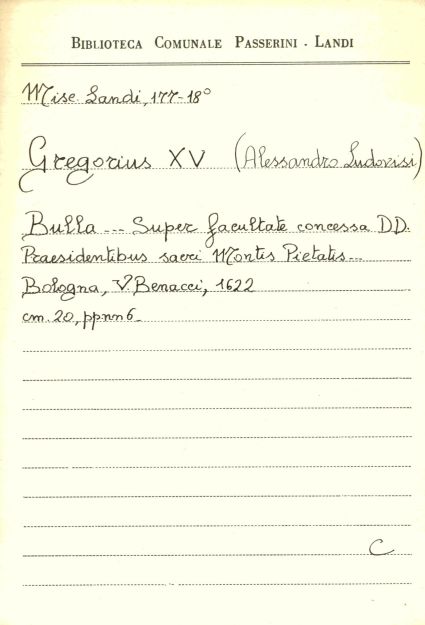 BIBLIOTECA COMUNALE PASSERINI - LANDI
Misc. Landi, 177-18°
Gregorius XV (Alessandro Ludovisi)
Bulla --- Super facultate concessa DD.
Praesidentibus sacri Montis Pietatis---
Bologna, V. Benacci, 1622
cm. 20, ppnn 6.
C